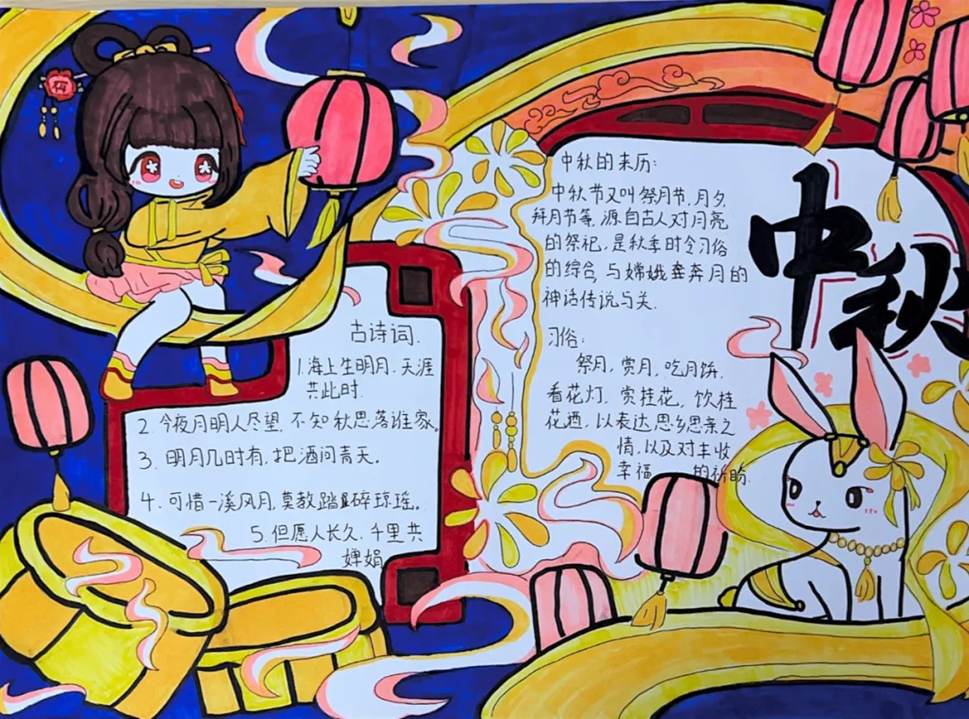 古诗词.
1.海上生明月.天涯
共此时.
2.今夜月明人尽望.不知秋思落谁家。
3.明月几时有.把酒问青天。
4.可惜一溪风月.莫教踏碎琼瑶。
5.但愿人长久.千里共
婵娟
中秋的来历:
中秋节又叫祭月节,月夕
拜月节等.源自古人对月亮
的祭祀,是秋季时令习俗
的综合,与嫦娥奔月的
神话传说有关.
习俗:
祭月,赏月,吃月饼,
看花灯,赏桂花,饮桂
花酒,以表达思乡思亲之
情,以及对丰收
幸福 的祈盼.
中秋